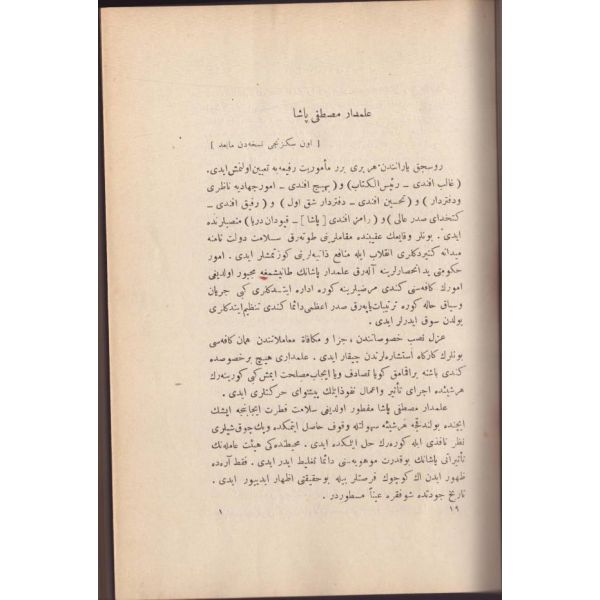 علمدار مصطفی پاشا
[ اون سكزنجی نسخه‌دن مابعد ]
روسجق یارانندن هر بری برر مأموریت رفیعه‌یه تعیین اولنمش ایدی.
( غالب افندی ـ رئیس‌الكتاب ) و ( بهیج افندی ـ امور جهادیه ناظری
ودفتردار ) و ( تحسین افندی ـ دفتردار شق اول ) و ( رفیق افندی ـ
كتخدای صدر عالی ) و ( رامز افندی [ پاشا ] ـ قپودان دریا ) منصبلرنده
ایدی . بونلر وقایعك عقیبنده مقاملرینی طوته‌رق سلامت دولت نامنه
میدانه كتیردكلری انقلاب ایله منافع ذاتیه‌لرینی كوزتمشلر ایدی . امور
حكومتی ید انحصارلرینه آله‌رق علمدار پاشانك طانیشمغه مجبور اولدیغی
امورك كافه‌سنی كندی مرضیلرینه كوره اداره ایتدكلری كبی جریان
وسیاق حاله كوره ترتیبات یاپه‌رق صدر اعظمی دائما كندی تنظیم ایتدكلری
یولدن سوق ایدرلر ایدی .
عزل نصب خصوصاتندن ، جزا و مكافاة معاملاتندن همان كافه‌سی
بونلرك كاركاه استشاره‌لرندن چیقار ایدی . علمداری هیچ بر خصوصده
كندی باشنه براقمامق كویا تصادف ویا ایجاب مصلحت ایمش كبی كورینه‌رك
هر شیئده اجرای تأثیر واعمال نفوذ ایتمك پیشوای حركتلری ایدی .
علمدار مصطفی پاشا مفطور اولدیغی سلامت فطرت ایجابنجه ایشك
ایچنده بولندقجه هر شیئه سهولتله وقوف حاصل ایتمكده وپك چوق شیلری
نظر نافذی ایله كوره‌رك حل ایتمكده ایدی . محیطنده‌كی هیئت عامله‌نك
تأثیراتی پاشانك بو قدرت موهوبه‌سنی دائما تغلیط ایدر ایدی . فقط آره‌ده
ظهور ایدن اك كوچوك فرصتلر بیله بو حقیقتی اظهار ایدییور ایدی .
تاریخ جودتده شو فقره عیناً مسطوردر .
١٩ ١